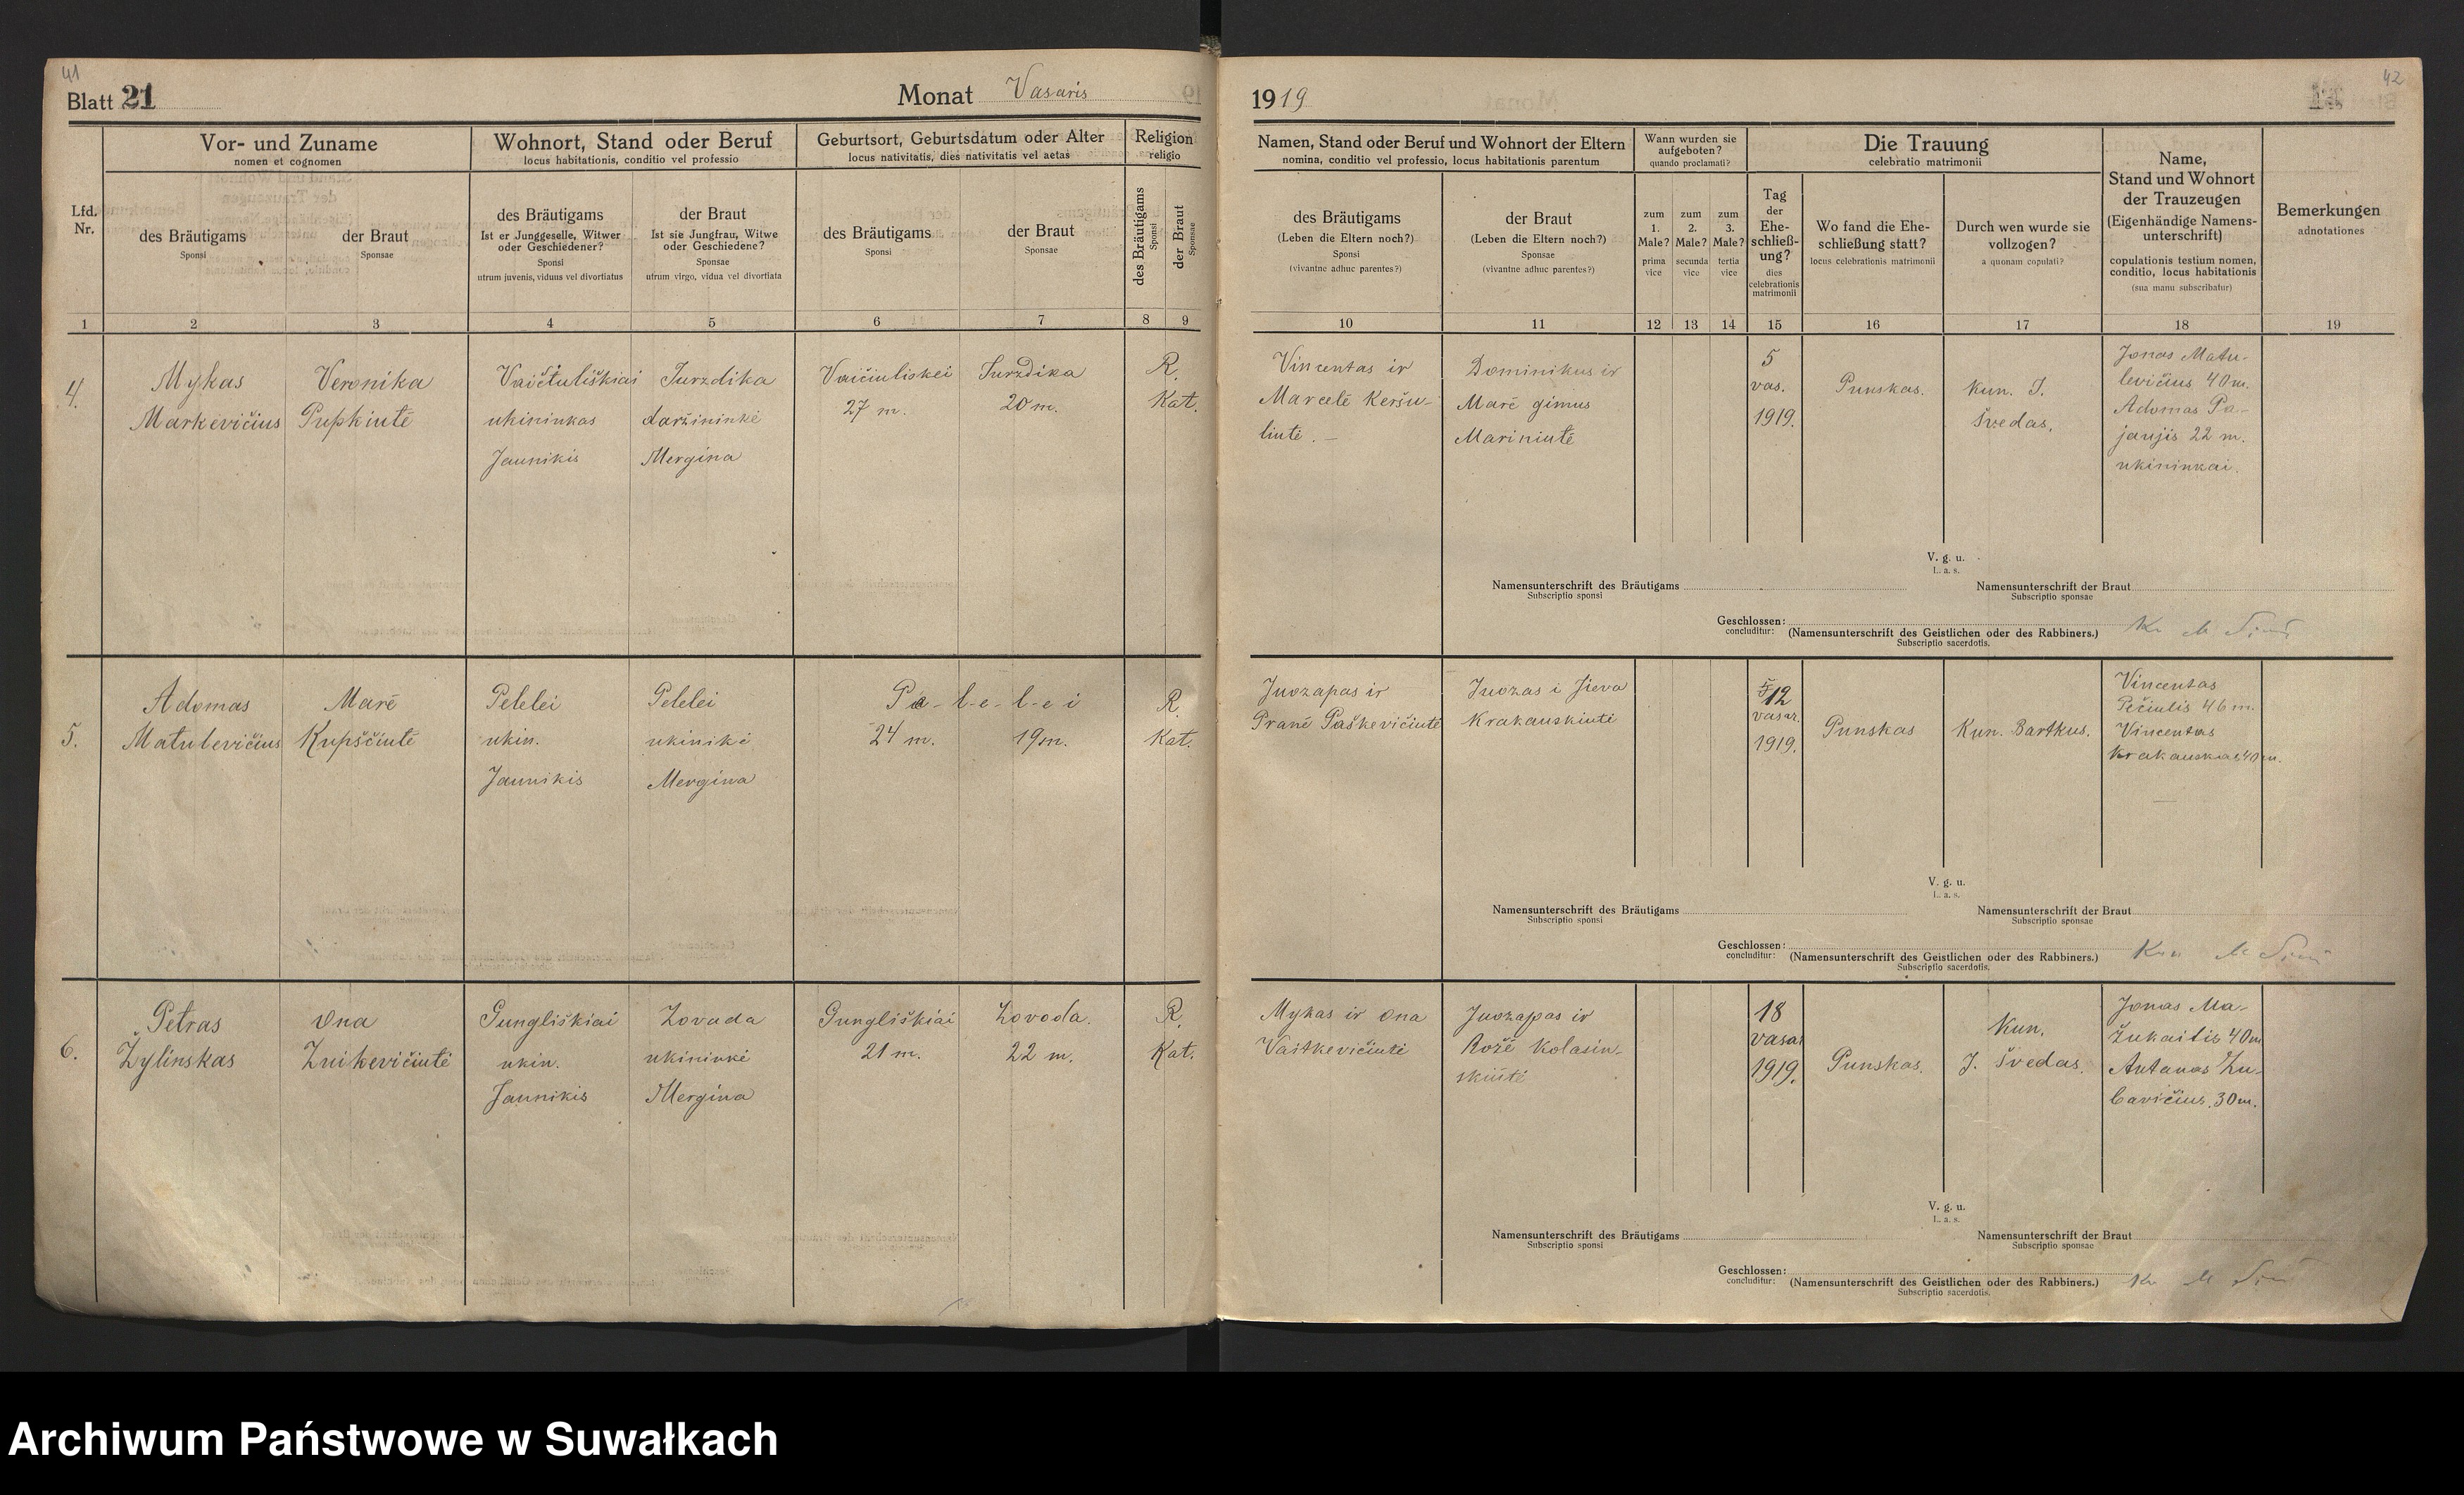 41
Blatt 21
Monat Vasaris
Vor- und Zuname
nomen et cognomen
Wohnort, Stand oder Beruf
locus habitationis, conditio vel professio
Geburtsort, Geburtsdatum oder Alter
locus nativitatis, dies nativitatis vel aetas
Religion
religio
Lfd.
Nr.
des Bräutigams
Sponsi
der Braut
Sponsae
des Bräutigams
Ist er Junggeselle, Witwer
oder Geschiedener?
Sponsi
utrum juvenis, viduus vel divortiatus
der Braut
Ist sie Jungfrau, Witwe
oder Geschiedene?
Sponsae
utrum virgo, vidua vel divortiata
des Bräutigams
Sponsi
der Braut
Sponsae
des Bräutigams
Sponsi
der Braut
Sponsae
1 2 3 4 5 6 7 8 9
4.
Mykas
Markevičius
Veronika
Pupkiutė
Vaičiuliškiai
ukininkas
Jaunikis
Jurzdika
daržininkė
Mergina
Vaičiuliskei
27 m.
Jurzdika
20 m.
R.
Kat.
5.
Adomas
Matulevičius
Marė
Kupščiutė
Pelelei
ukin.
Jaunikis
Pelelei
ukinikė
Mergina
Pe-l-e-l-e i
24 m. 19 m.
R.
Kat.
6.
Petras
Žylinskas
Ona
Zuikevičiutė
Gungliškiai
ukin.
Jaunikis
Zovada
ukininkė
Mergina
Gungliškiai
21 m.
Zovoda.
22 m.
R.
Kat.
42
1919
Namen, Stand oder Beruf und Wohnort der Eltern
nomina, conditio vel professio, locus habitationis parentum
Wann wurden sie
aufgeboten?
quando proclamati?
Die Trauung
celebratio matrimonii
Name,
Stand und Wohnort
der Trauzeugen
(Eigenhändige Namens-
unterschrift)
copulationis testium nomen,
conditio, locus habitationis
(sua manu subscribatur)
Bemerkungen
adnotationes
des Bräutigams
(Leben die Eltern noch?)
Sponsi
(vivantne adhuc parentes?)
der Braut
(Leben die Eltern noch?)
Sponsae
(vivantne adhuc parentes?)
zum
1.
Male?
prima
vice
zum
2.
Male?
secunda
vice
zum
3.
Male?
tertia
vice
Tag
der
Ehe-
schließ-
ung?
dies
celebrationis
matrimonii
Wo fand die Ehe-
schließung statt?
locus celebrationis matrimonii
Durch wen wurde sie
vollzogen?
a quonam copulati?
10 11 12 13 14 15 16 17 18 19
Vincentas ir
Marcelė Keršu-
liutė. —
Dominikus ir
Marė gimus
Mariniutė
5
vas.
1919.
Punskas.
Kun. J.
Švedas.
Jonas Matu-
levičius 40 m.
Adomas Pa-
jaujis 22 m.
ukininkai.
V. g. u.
L. a. s.
Namensunterschrift des Bräutigams
Subscriptio sponsi
Namensunterschrift der Braut
Subscriptio sponsae
Geschlossen:
concluditur:
(Namensunterschrift des Geistlichen oder des Rabbiners.)
Subscriptio sacerdotis.
Juozapas ir
Pranė Paškevičiutė
Juozas i Jieva
Krakauskiutė
12
vasar.
1919.
Punskas
Kun. Bartkus.
Vincentas
Pečiulis 46 m.
Vincentas
Krakauskas 40 m.
V. g. u.
L. a. s.
Namensunterschrift des Bräutigams
Subscriptio sponsi
Namensunterschrift der Braut
Subscriptio sponsae
Geschlossen:
concluditur:
(Namensunterschrift des Geistlichen oder des Rabbiners.)
Subscriptio sacerdotis.
Mykas ir Ona
Vaitkevičiutė
Juozapas ir
Rožė Kolasin-
skiutė
18
vasar
1919.
Punskas.
Kun.
J. Švedas.
Jonas Ma-
žukaitis 40 m
Antanas Zu-
bavičius 30 m.
V. g. u.
L. a. s.
Namensunterschrift des Bräutigams
Subscriptio sponsi
Namensunterschrift der Braut
Subscriptio sponsae
Geschlossen:
concluditur:
(Namensunterschrift des Geistlichen oder des Rabbiners.)
Subscriptio sacerdotis.
Archiwum Państwowe w Suwałkach